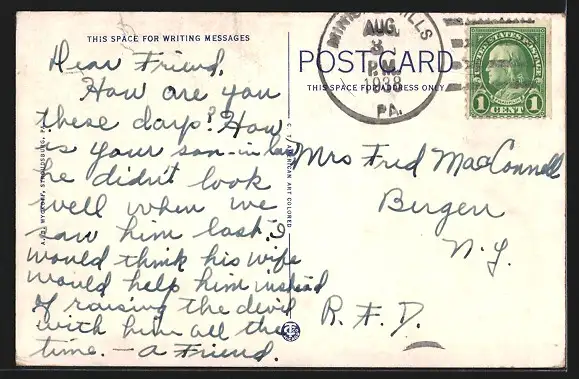 THIS SPACE FOR WRITING MESSAGES
Dear Friend,
How are you
these days? How
is your son-in-law
he didn't look
well when we
saw him last. I
would think his wife
would help him instead
of raising the devil
with him all the
time. — a Friend.
C. T. AMERICAN ART COLORED
MILLS
AUG.
3
P.M.
1938
PA.
POST CARD
THIS SPACE FOR ADDRESS ONLY
UNITED STATES POSTAGE
1 CENT 1
Mrs Fred MacConnell
Bergen
N.Y.
R.F.D.